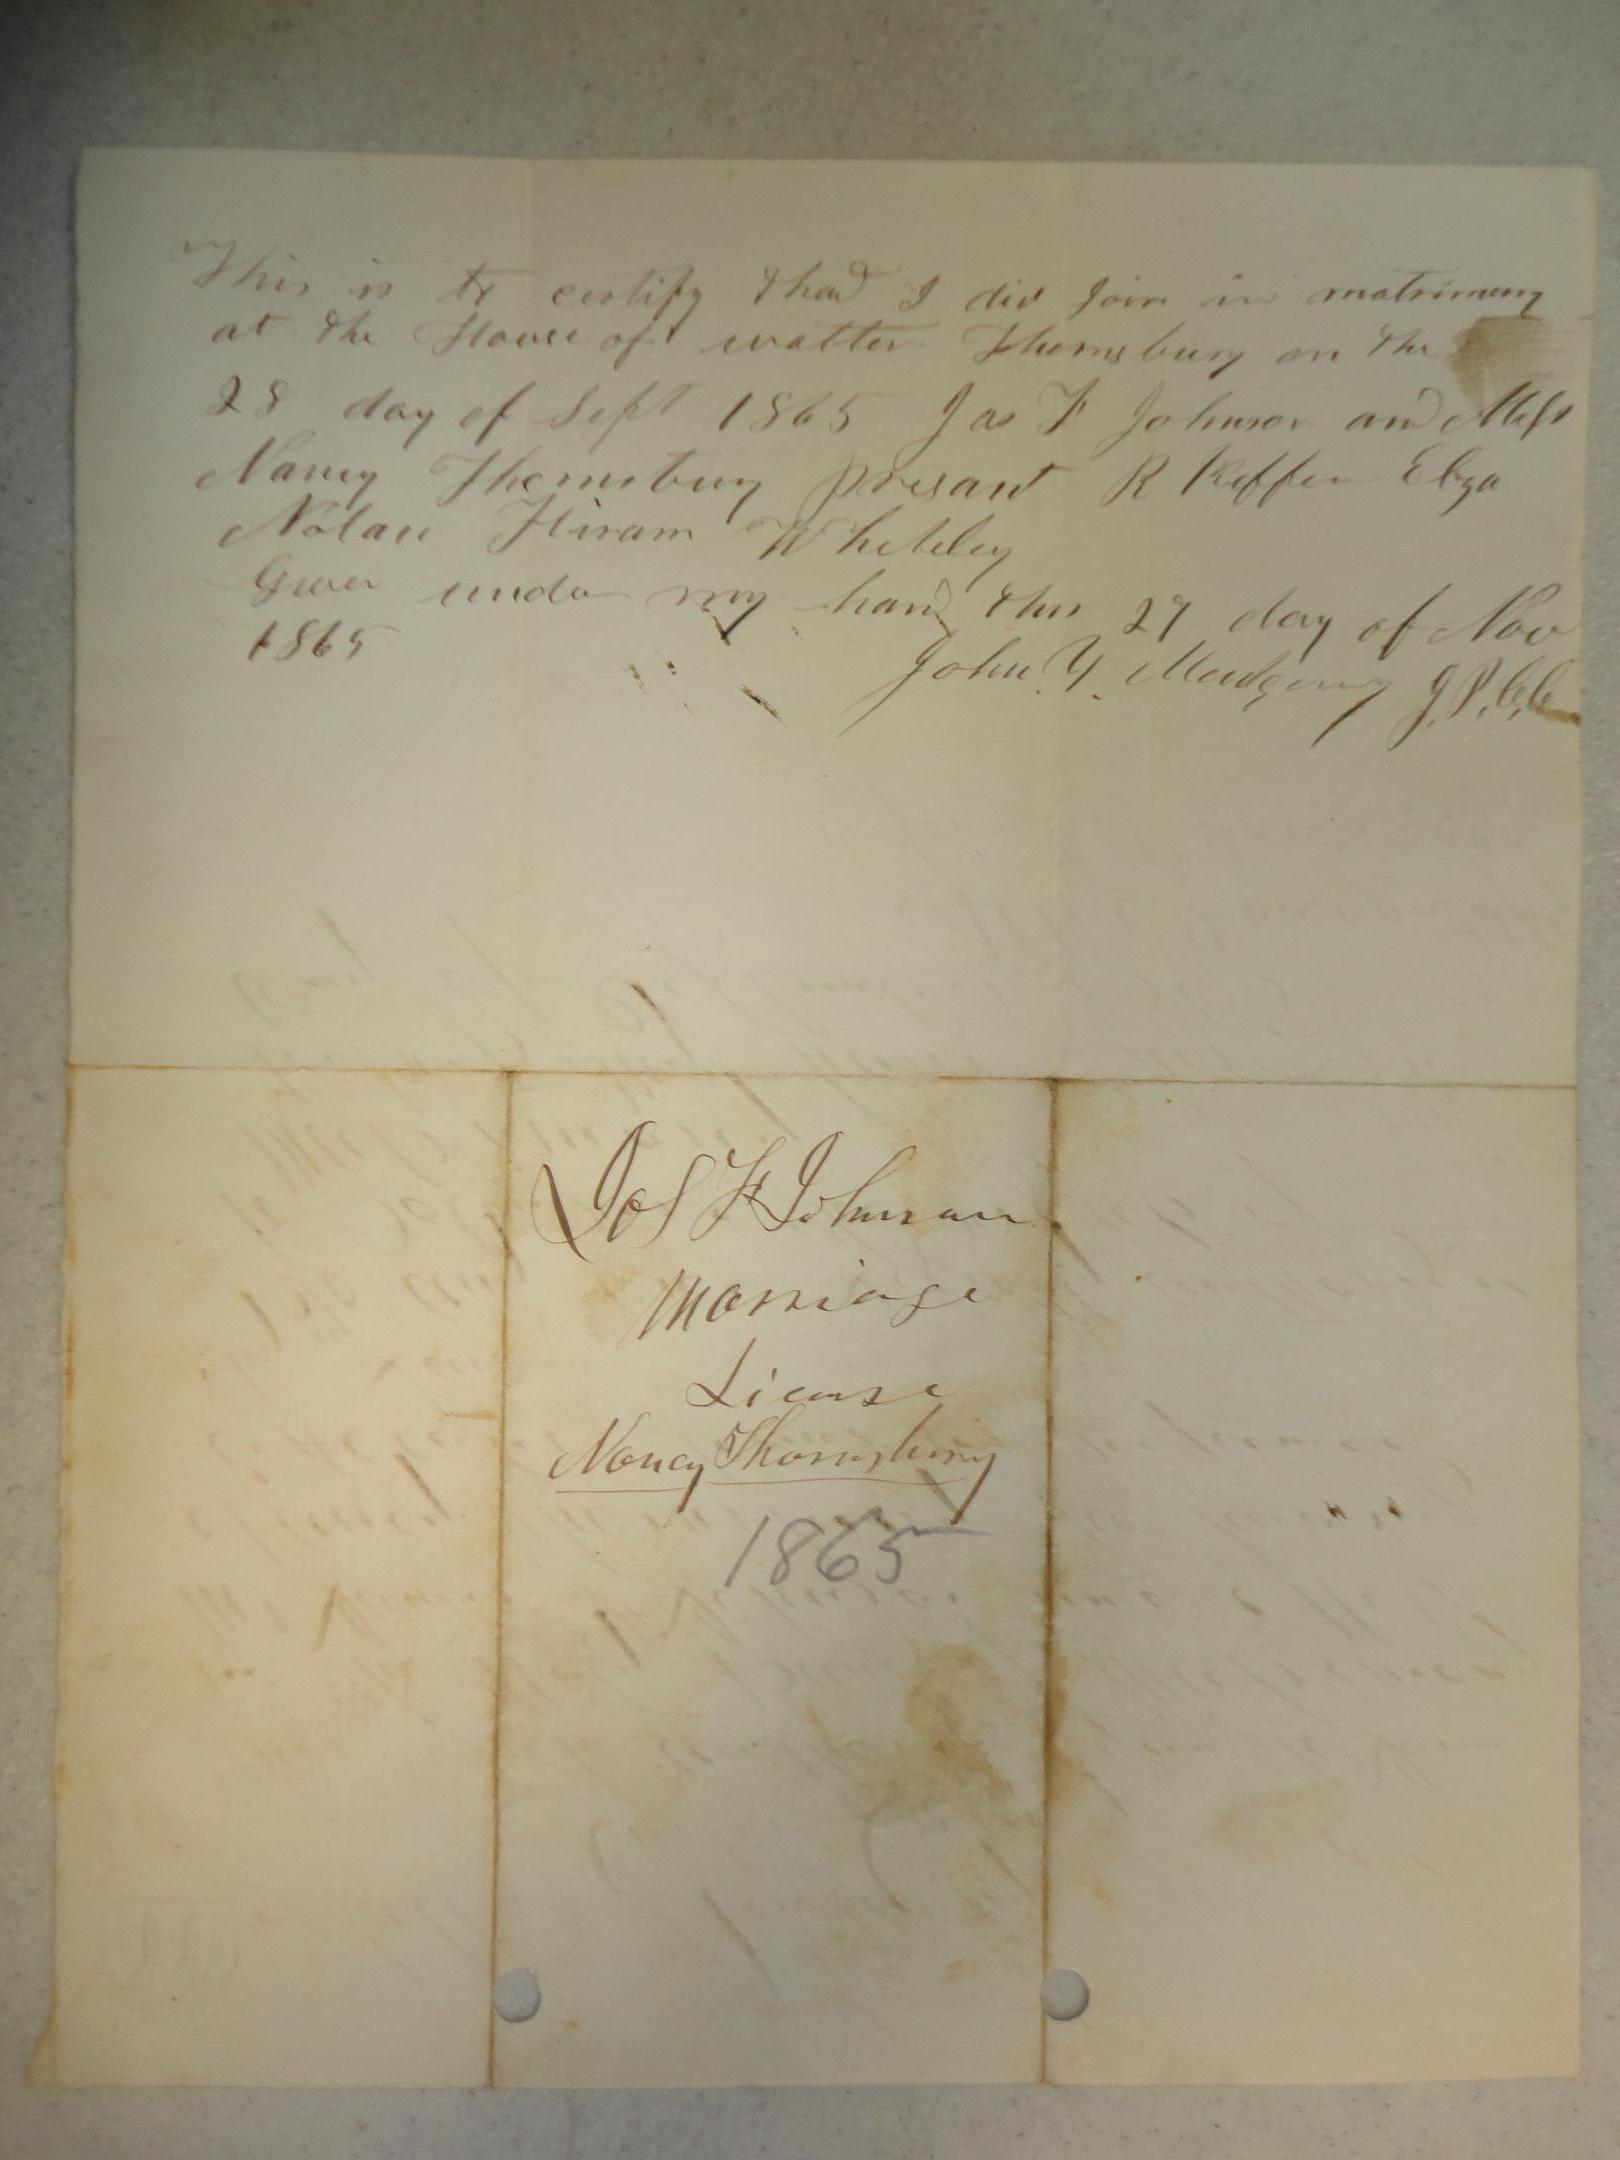 This is to certify that I did join in matrimony
at the House of watter Thornsbury on the
28 day of Sept 1865 Jas F Johnson and Miss
Nancy Thornsbury presant R Kiffer Elza
Nolan Hiram Whiteley
Given under my hand this 27 day of Nov
1865
John Y. J.P.C.C
Jas F Johnson
Marriage
License
Nancy Thornsbury
1865